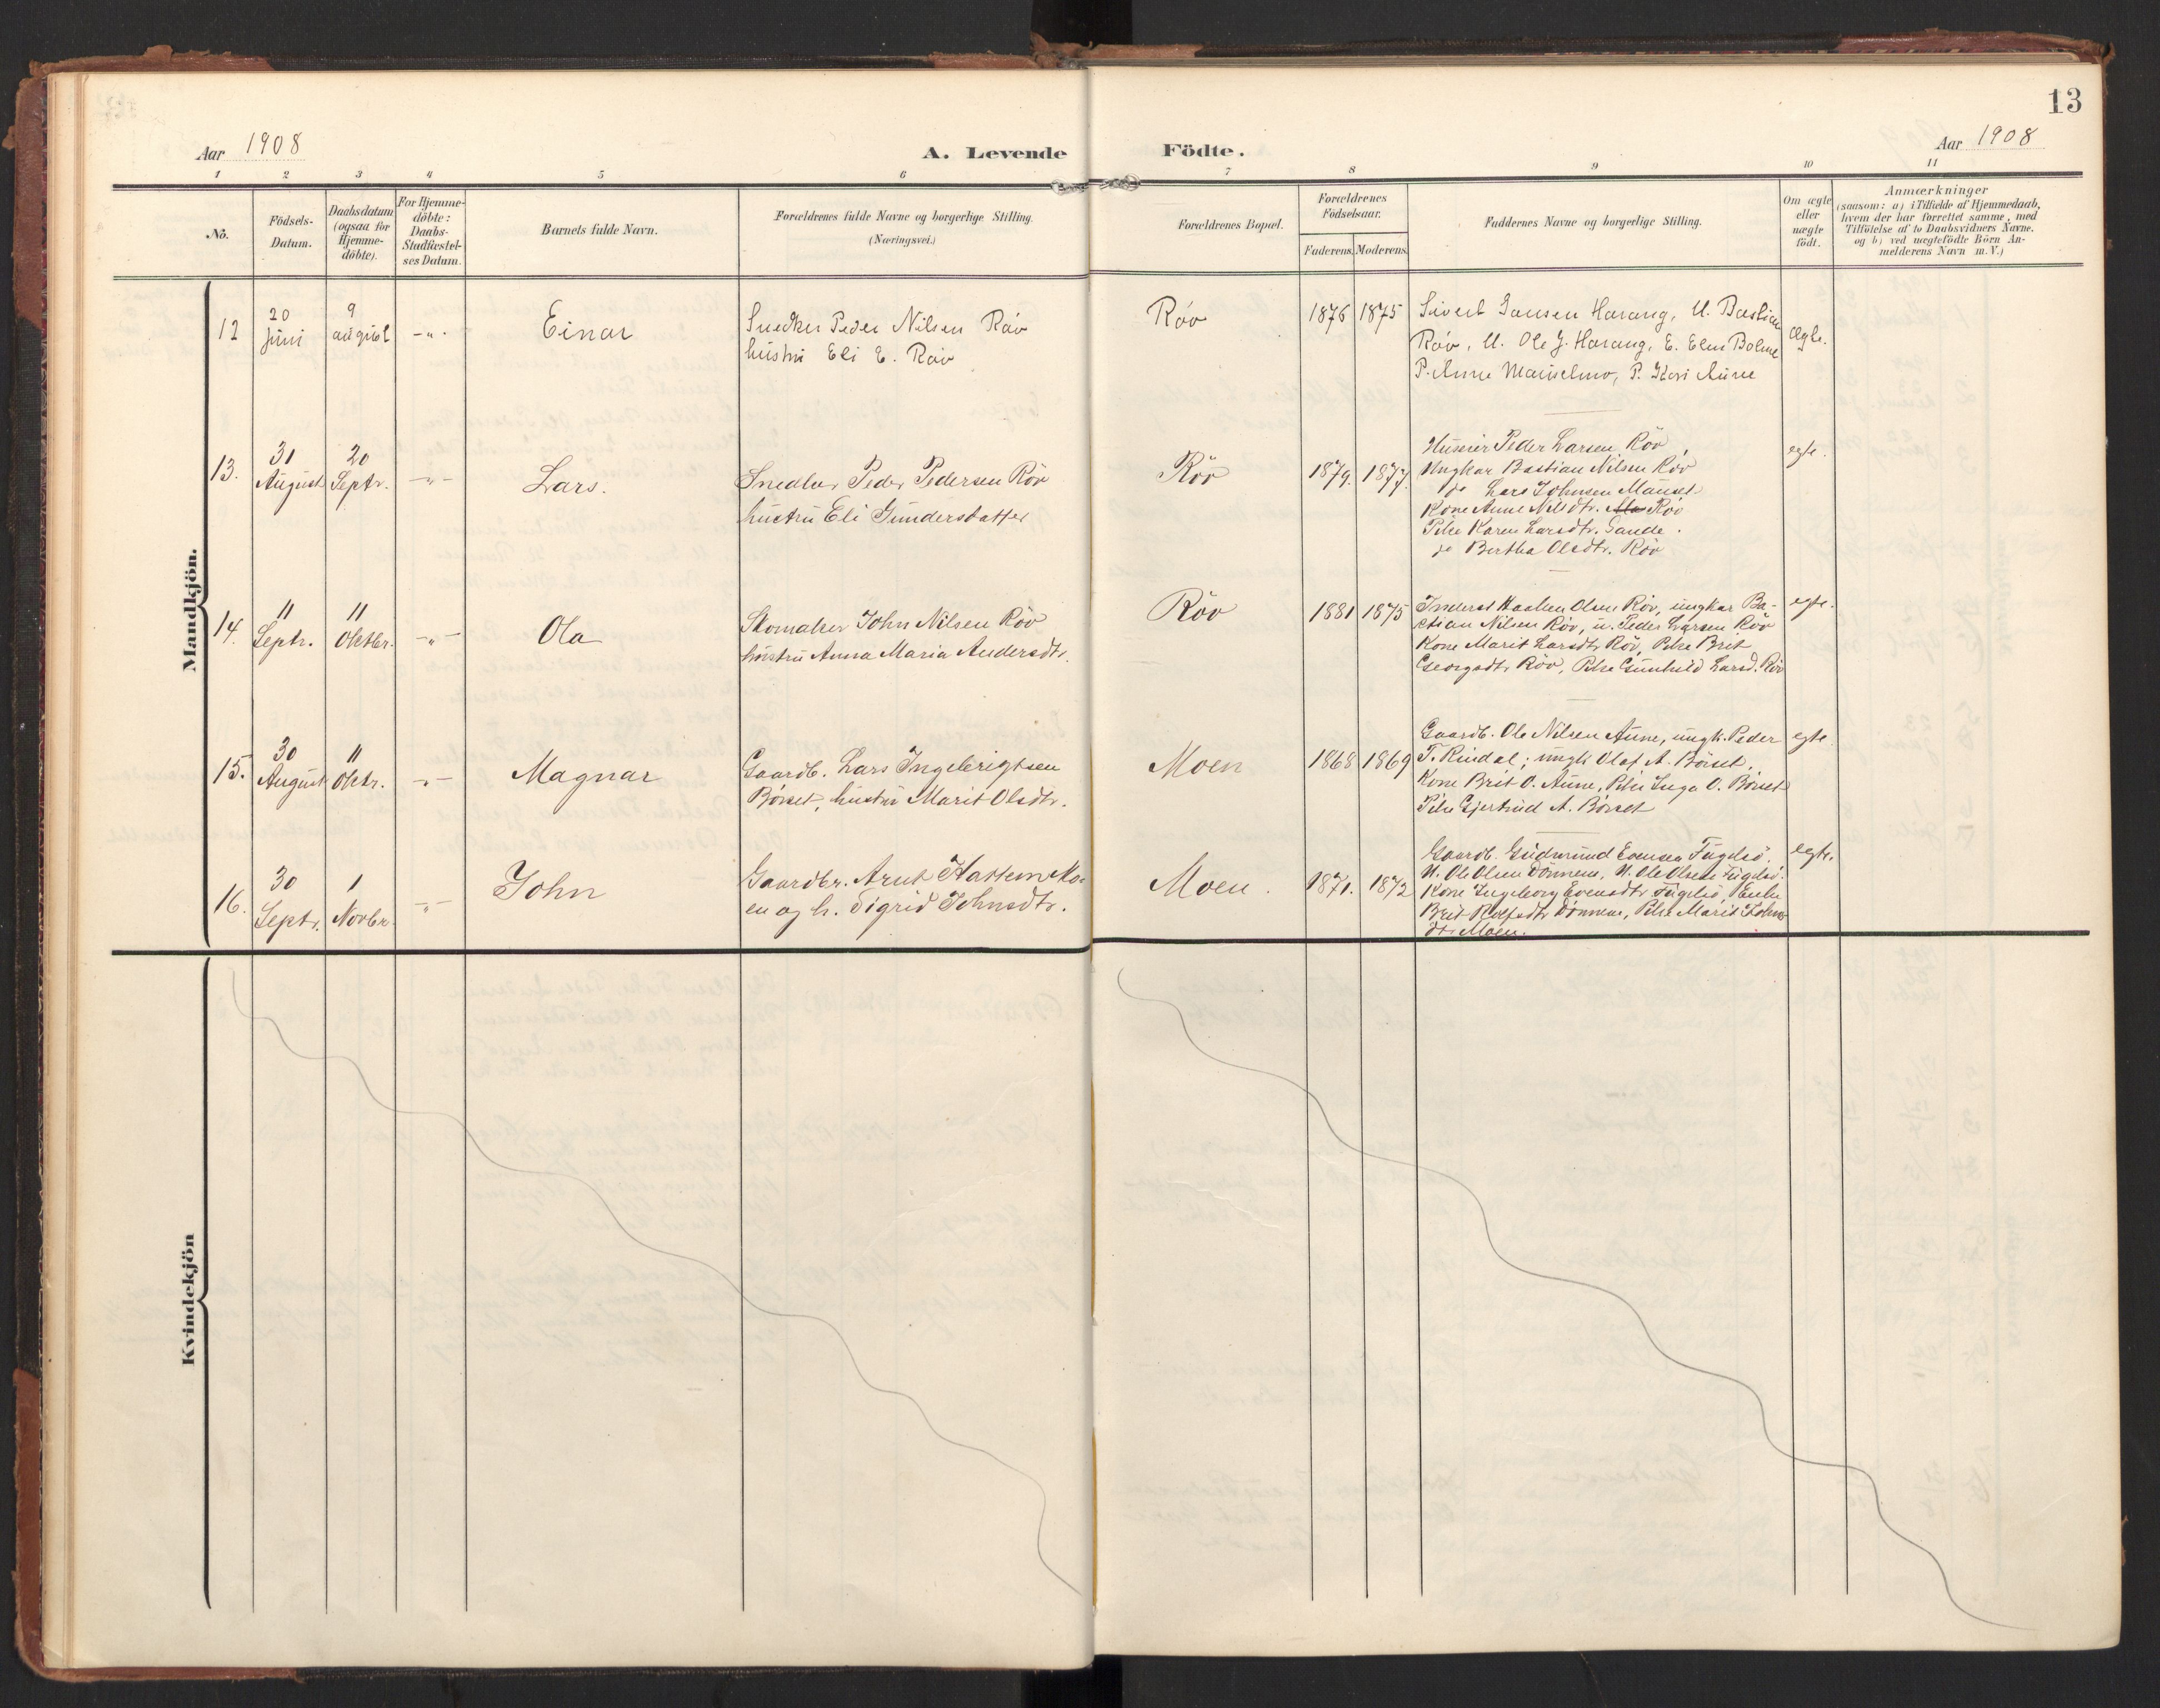 13
Aar 1908
A. Levende Födte.
Aar 1908
1 2 3 4 5 6 7 8 9 10 11
No.
Födsels-
Datum.
Daabsdatum
(ogsaa for
Hjemme-
döbte).
For Hjemme-
döbte:
Daabs-
Stadfæstel-
ses Datum.
Barnets fulde Navn.
Forældrenes fulde Navne og borgerlige Stilling.
(Næringsvei.)
Forældrenes Bopæl.
Forældrenes
Födselsaar.
Faderens. Moderens.
Faddernes Navne og borgerlige Stilling.
Om ægte
eller
uægte
födt.
Anmærkninger
(saasom: a) i Tilfælde af Hjemmedaab,
hvem der har forrettet samme, med
Tilföielse af to Daabsvidners Navne.
og b) ved uægtefödte Börn An-
melderens Navn m.V.)
Mandkjön.
12
20
Juni
9
august
-"-
Einar
Snedker Peder Nilsen Röv
hustru Eli E. Röv
Röv
1876 1875
Sivert Jansen Harang, U. Bastian
Röv, U. Ole J. Harang, E. Elen Bolme
P. Anne P. Kari Aune
Ægte.
13.
31
August
20
Septr.
-"-
Lars.
Peder Pedersen Röv
hustru Eli Gundersdatter
Röv
1879. 1877.
Peder Larsen Röv,
Ungkar Bastian Nilsen Röv
do Lars Johnsen
Kone Anne Nilsdtr. Röv
Pike Karen Larsdtr. Sande.
do Bertha Olsdtr. Röv
egte.
14.
11
Septr.
11
Oktbr.
-"-
Ola
Skomaker John Nilsen Röv
hustru Anna Maria Andersdtr.
Röv
1881 1875
Inderst Haaken Olsen Röv, ungkar Ba-
stian Nilsen Röv, u. Peder Larsen Röv
Kone Marit Larsdtr Röv, Pike Brit
Georgsdtr Röv, Pike Gunhild Larsd. Röv
egte.
15.
30
August
11
Oktr.
-"-
Magnar
Gaardb. Lars Ingebrigtsen
Börset, hustru Marit Olsdtr.
Moen
1868 1869
Gaardb. Ole Nilsen Aune, ungk. Peder
T. Rindal; ungk Olaf A. Börset,
Kone Brit O. Aune, Pike Inga O. Börset
Pike Gjertrud A. Börset
egte
16.
30
Septr.
1
Novbr.
-"-
John
Gaardbr. Arnt Halsem Mo-
en og h. Sigrid Johnsdtr.
Moen.
1871. 1872
Gaardb. Gudmund Evensen Fugelsö.
U. Ole Olsen Dönnem, U. Ole Olsen Fugelsö
Kone Ingeborg Evensdtr Fugelsö, Enke
Brit Dönnem, Pike Marit Johns-
dtr Moen.
egte.
Kvindekjön